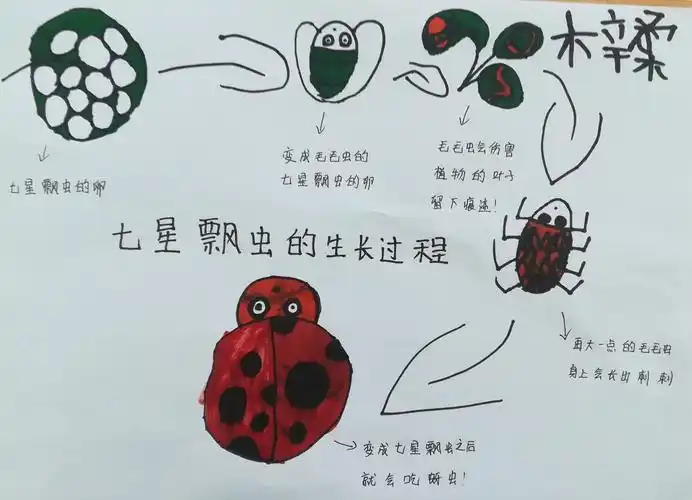 梓柔
七星飘虫的卵
变成毛毛虫的
七星飘虫的卵
毛毛虫会伤害
植物的叶子
留下痕迹！
七星飘虫的生长过程
再大一点的毛毛虫
身上会长出刺刺
变成七星飘虫之后
就会吃蚜虫！